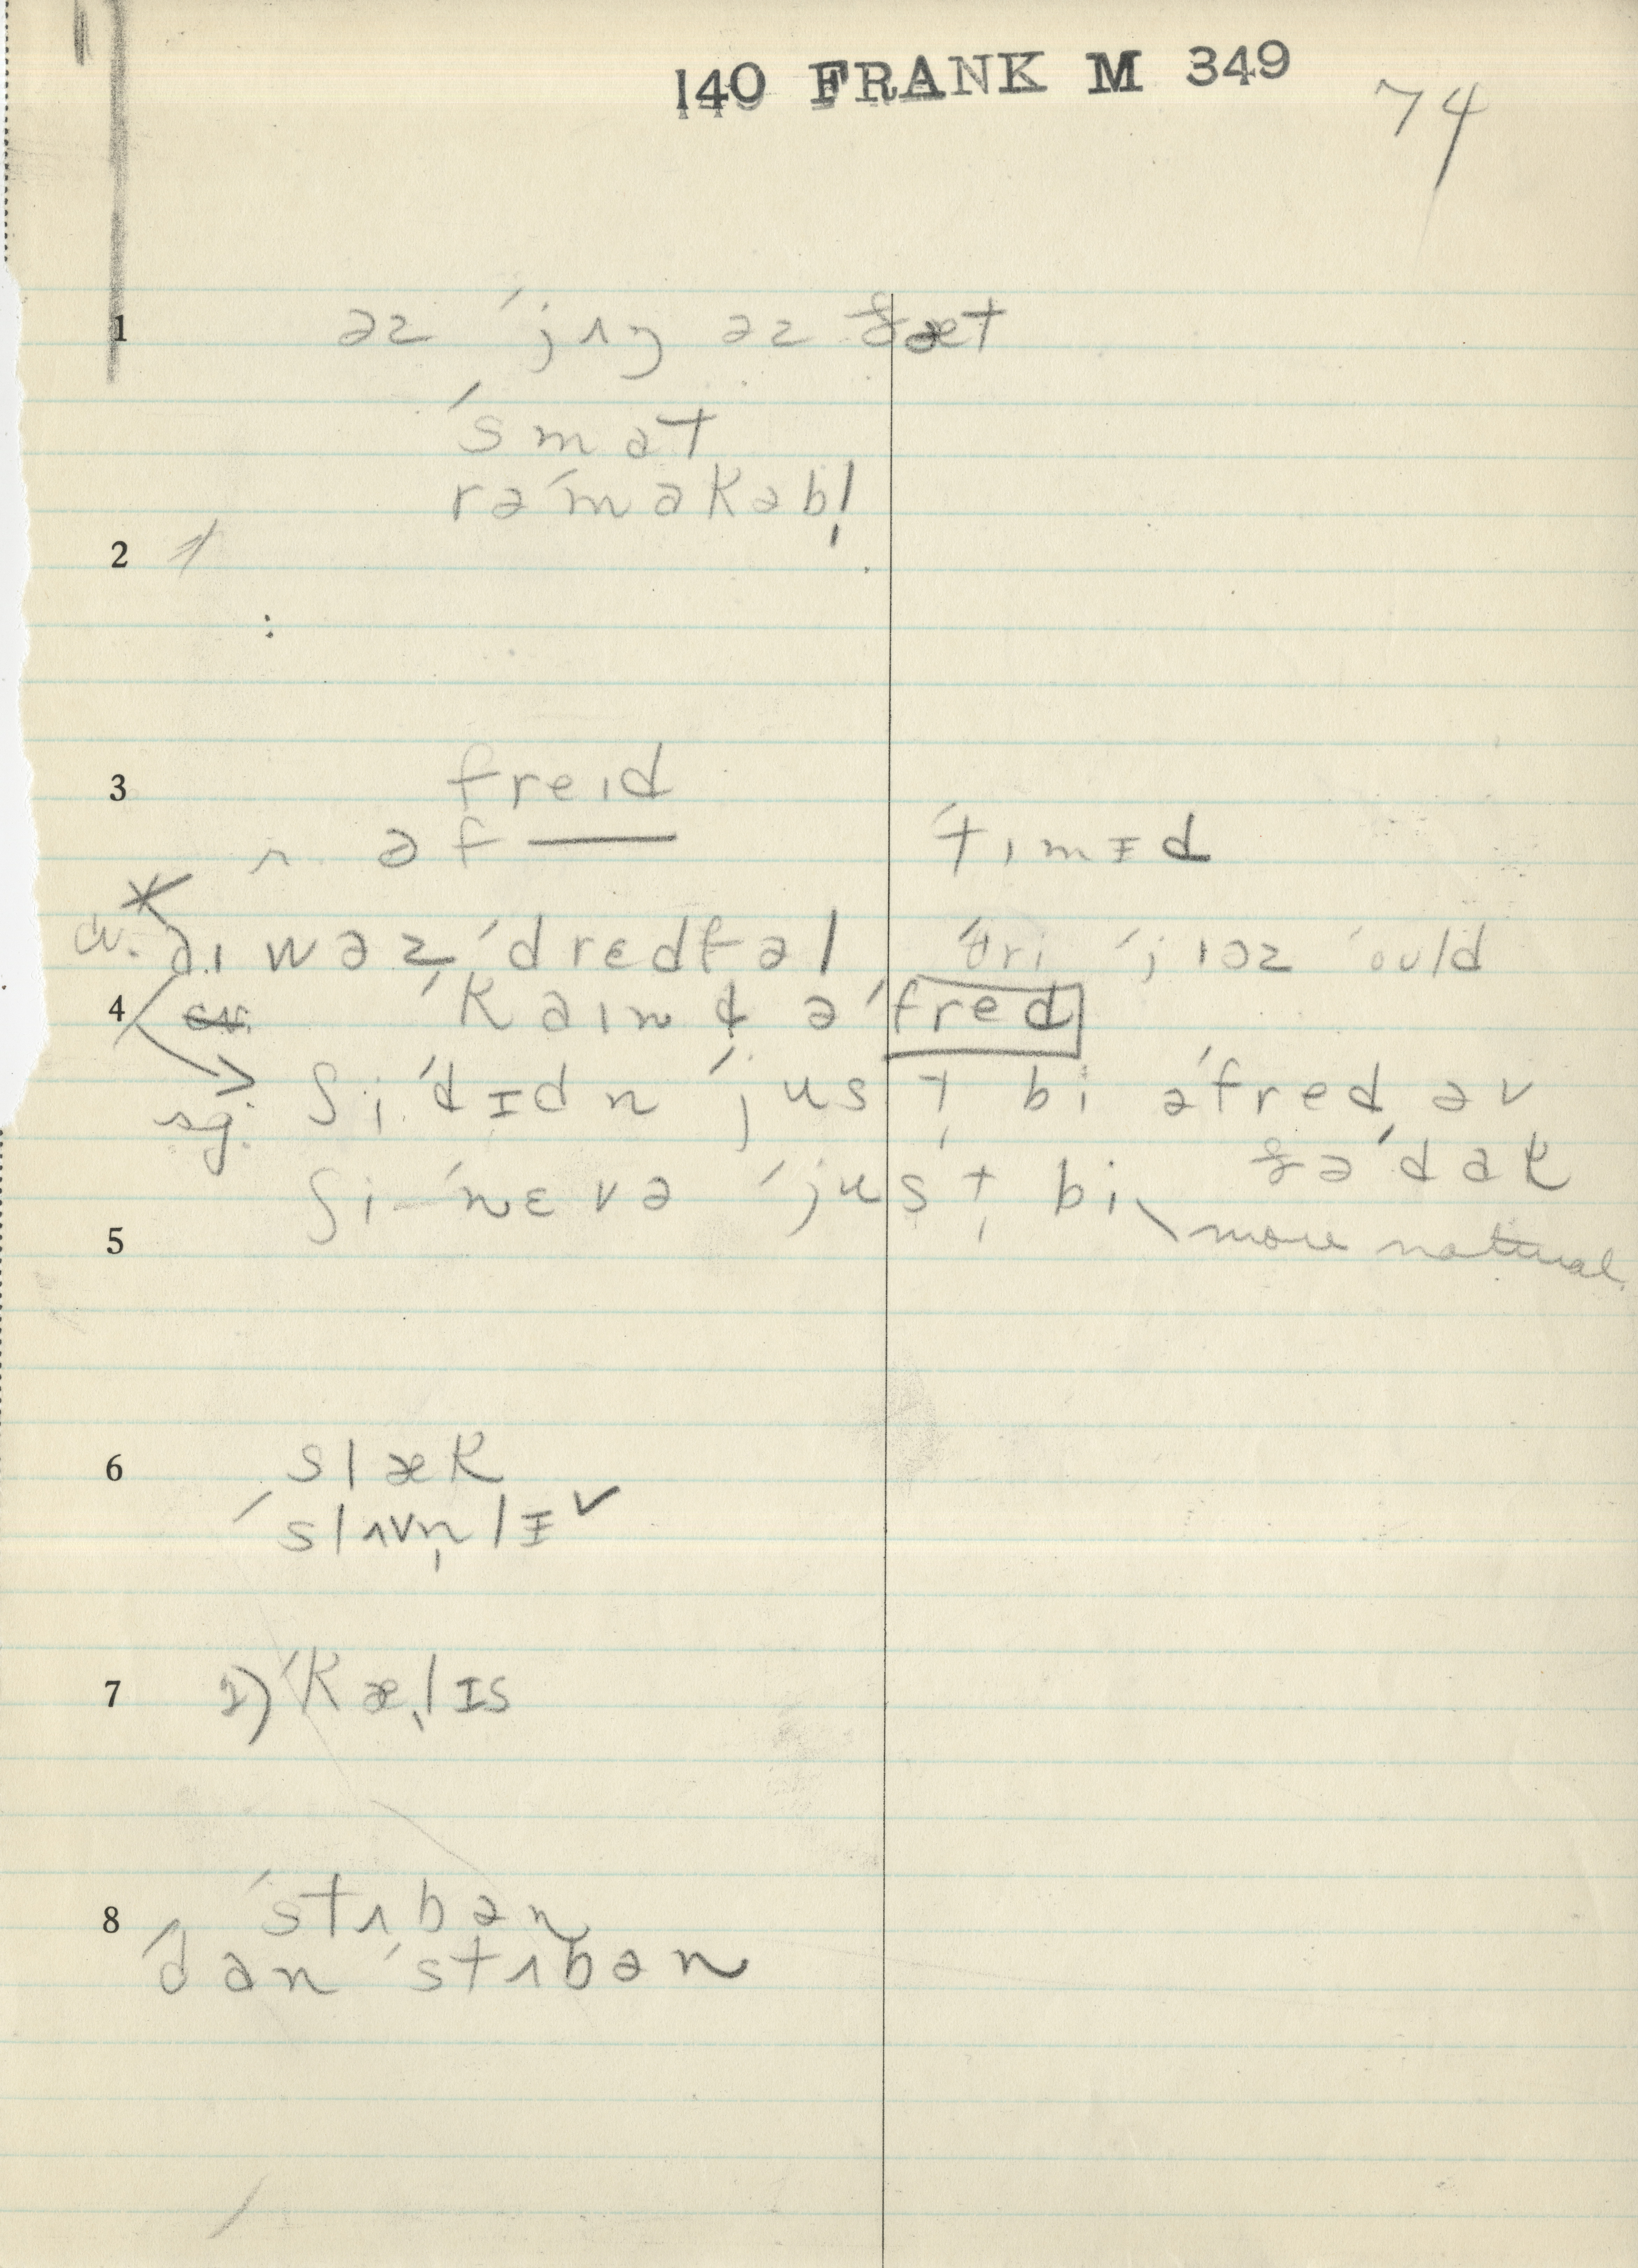 140 FRANK M 349
74
1 əz ˈjʌŋ əz ðæt
ˈsmat
rəˈmakəbl̩
2
3 freɪd
r. əf—— ˈtɪmɪd
cv. aɪ wəz ˈdredfəl θri ˈjɪəz ˈould
4 cv. ˈkaɪnt əˈfred
sg. ʃi ˈdɪdn ˈjust̩ bi əˈfred əv
ðə ˈdak
ʃi ˈnɛvə ˈjust̩ bi
5 more natural
6 slæk
ˈslʌvn̩lɪ ✓
7 1) ˈkælɪs
8 ˈstʌbən
ˈdan ˈstʌbən